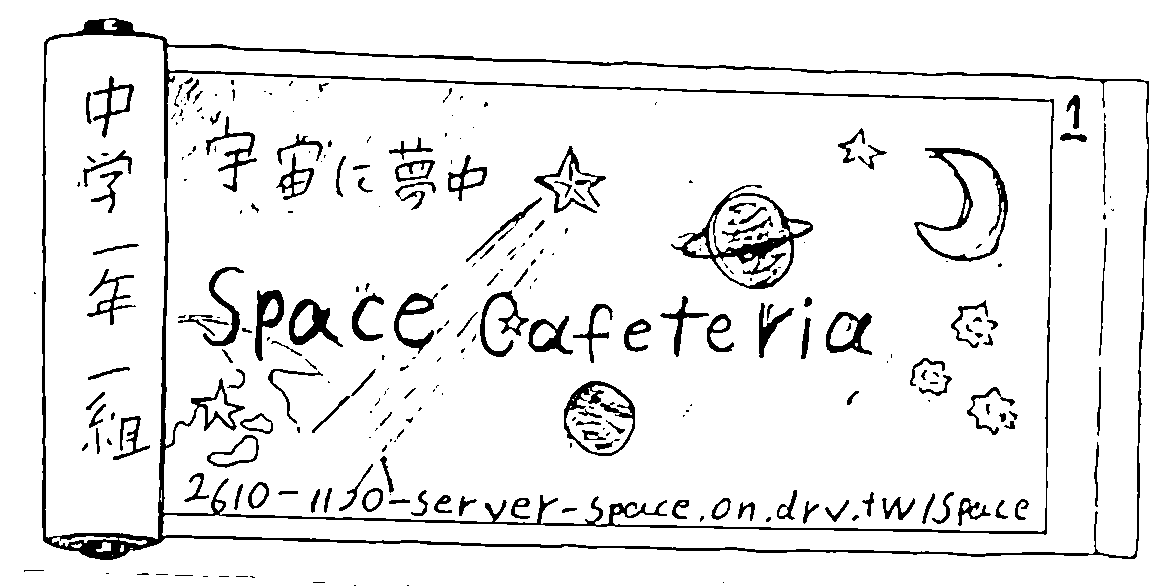 中学一年一組
1
宇宙に夢中
Space Cafeteria
2610-1130-server-space.on.drv.tw/space